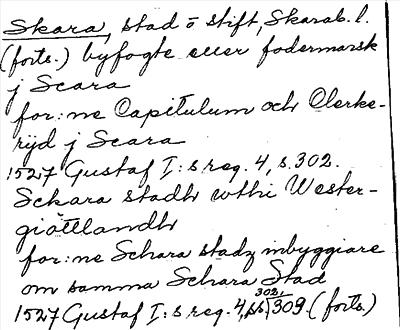 Skara, stad o stift, Skarab. l.
(forts.) byfogte eller fodermarsk
j Scara
for:ne Capitulum och Clerke-
rijd j Scara
1527 Gustaf I:s reg. 4, s. 302.
Sckara stadh wthi Wester-
giöttlandh
for:ne Schara stadz inbyggiare
om samma Schara Stad
302,
1527 Gustaf I:s reg. 4, ss. 309. (forts)